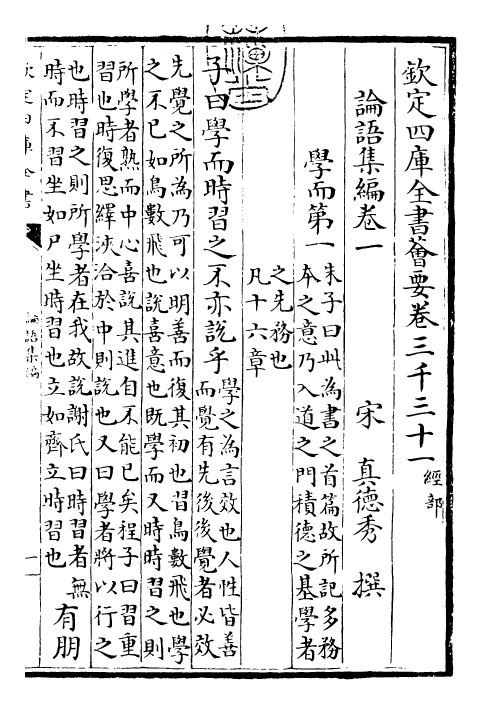 欽定四庫全書薈要卷三千三十一 經部
論語集編卷一
宋 真德秀 撰
學而第一
朱子曰此為書之首篇故所記多務
本之意乃入道之門積德之基學者
之先務也
凡十六章
子曰學而時習之不亦說乎
學之為言效也人性皆善
而覺有先後後覺者必效
先覺之所為乃可以明善而復其初也習鳥數飛也學
之不已如鳥數飛也說喜意也既學而又時時習之則
所學者熟而中心喜說其進自不能已矣程子曰習重
習也時復思繹浹洽於中則說也又曰學者將以行之
也時習之則所學者在我故說謝氏曰時習者無
時而不習坐如尸坐時習也立如齊立時習也
有朋
欽定四庫全書
論語集編
一